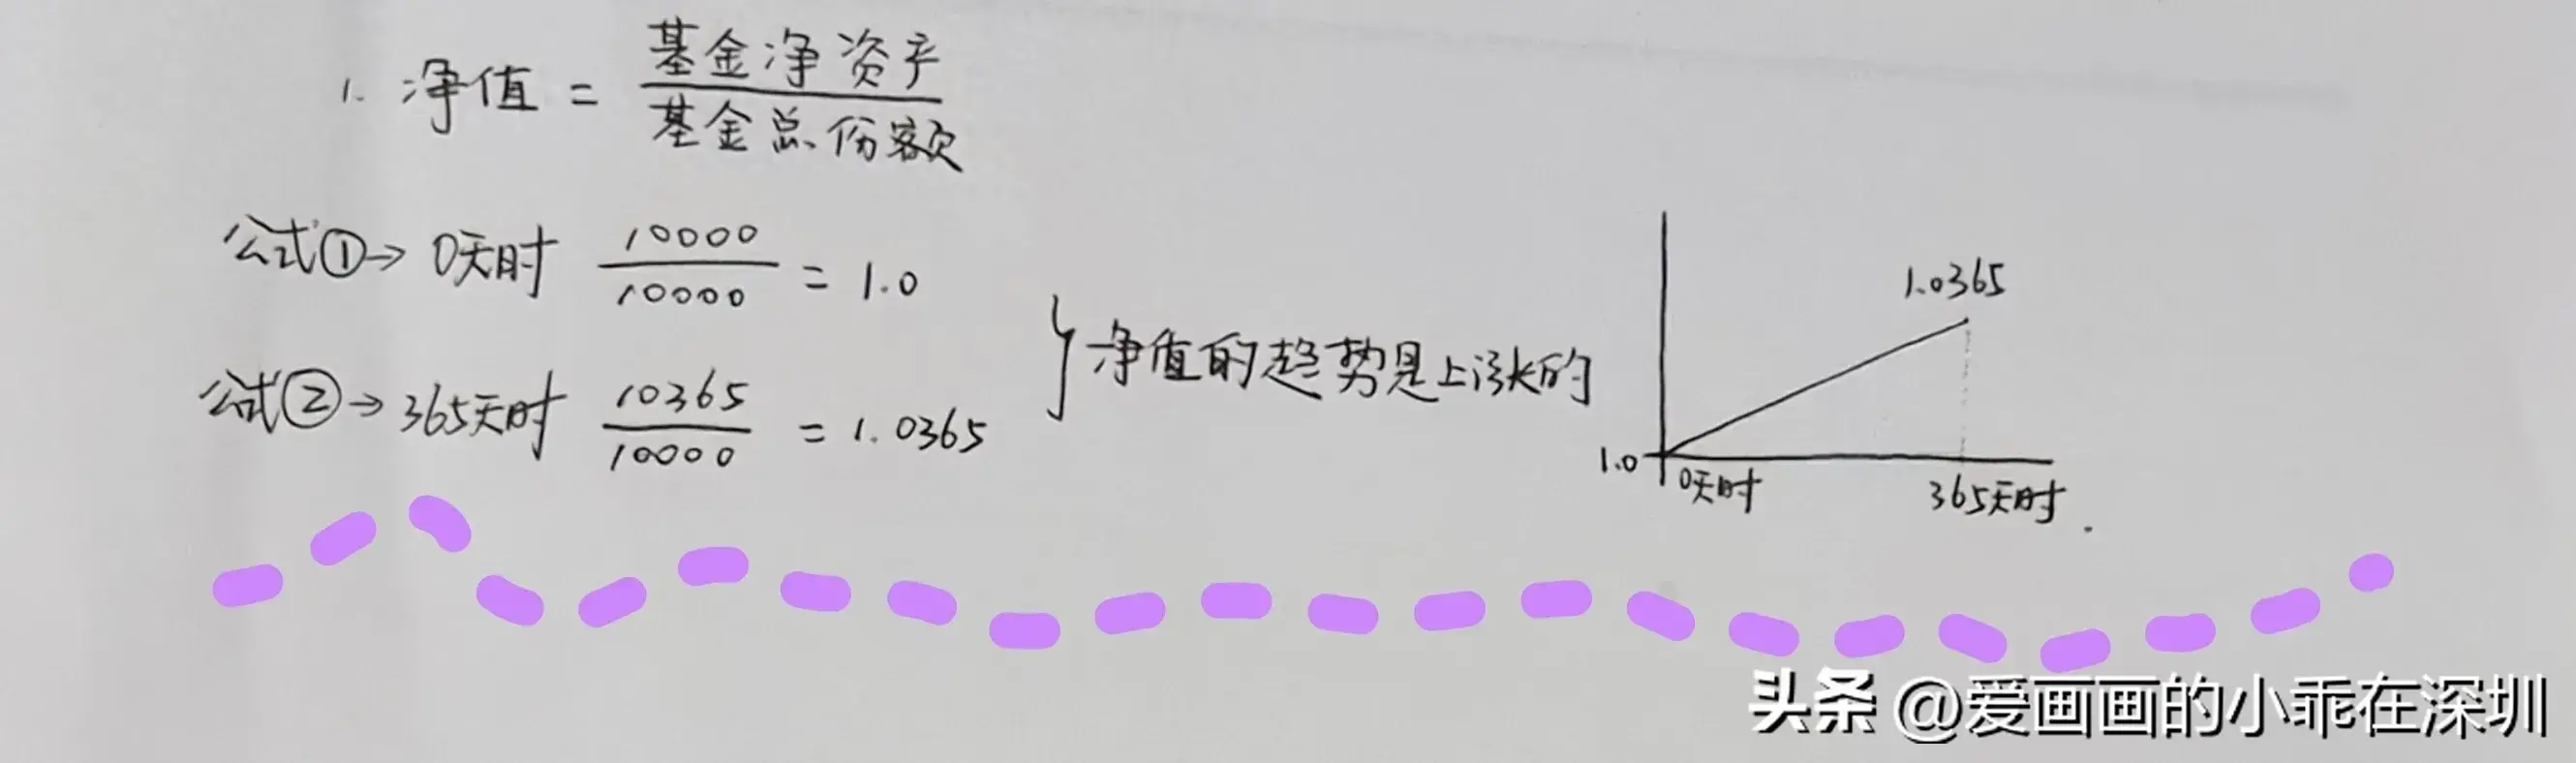 1. 净值 = 基金净资产
基金总份额
公式①→ 0天时 10000
10000 = 1.0
公式②→ 365天时 10365
10000 = 1.0365
} 净值的趋势是上涨的
1.0365
1.0
0天时
365天时.
头条 @爱画画的小乖在深圳